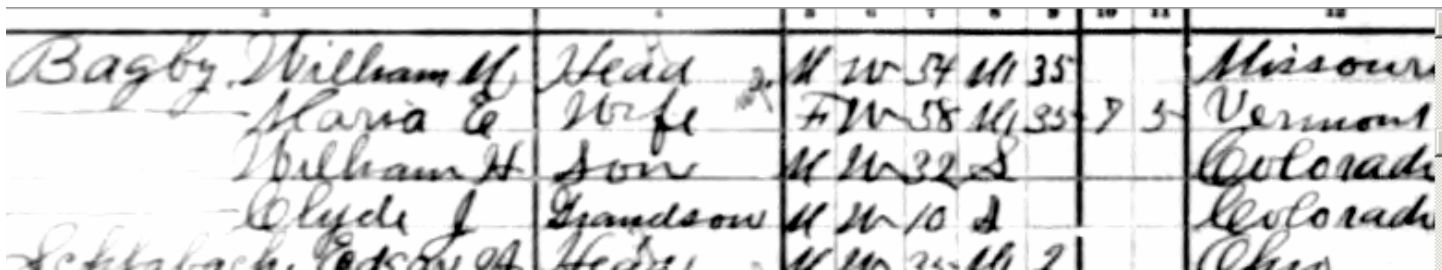 3 4 5 6 7 8 9 10 11 12
Bagby William M Head M W 54 M1 35 Missouri
Maria E Wife F W 58 M1 35 7 5 Vermont
William H Son M W 32 S Colorado
Clyde J Grandson M W 10 S Colorado
Edson A Head M W M1 2 Ohio